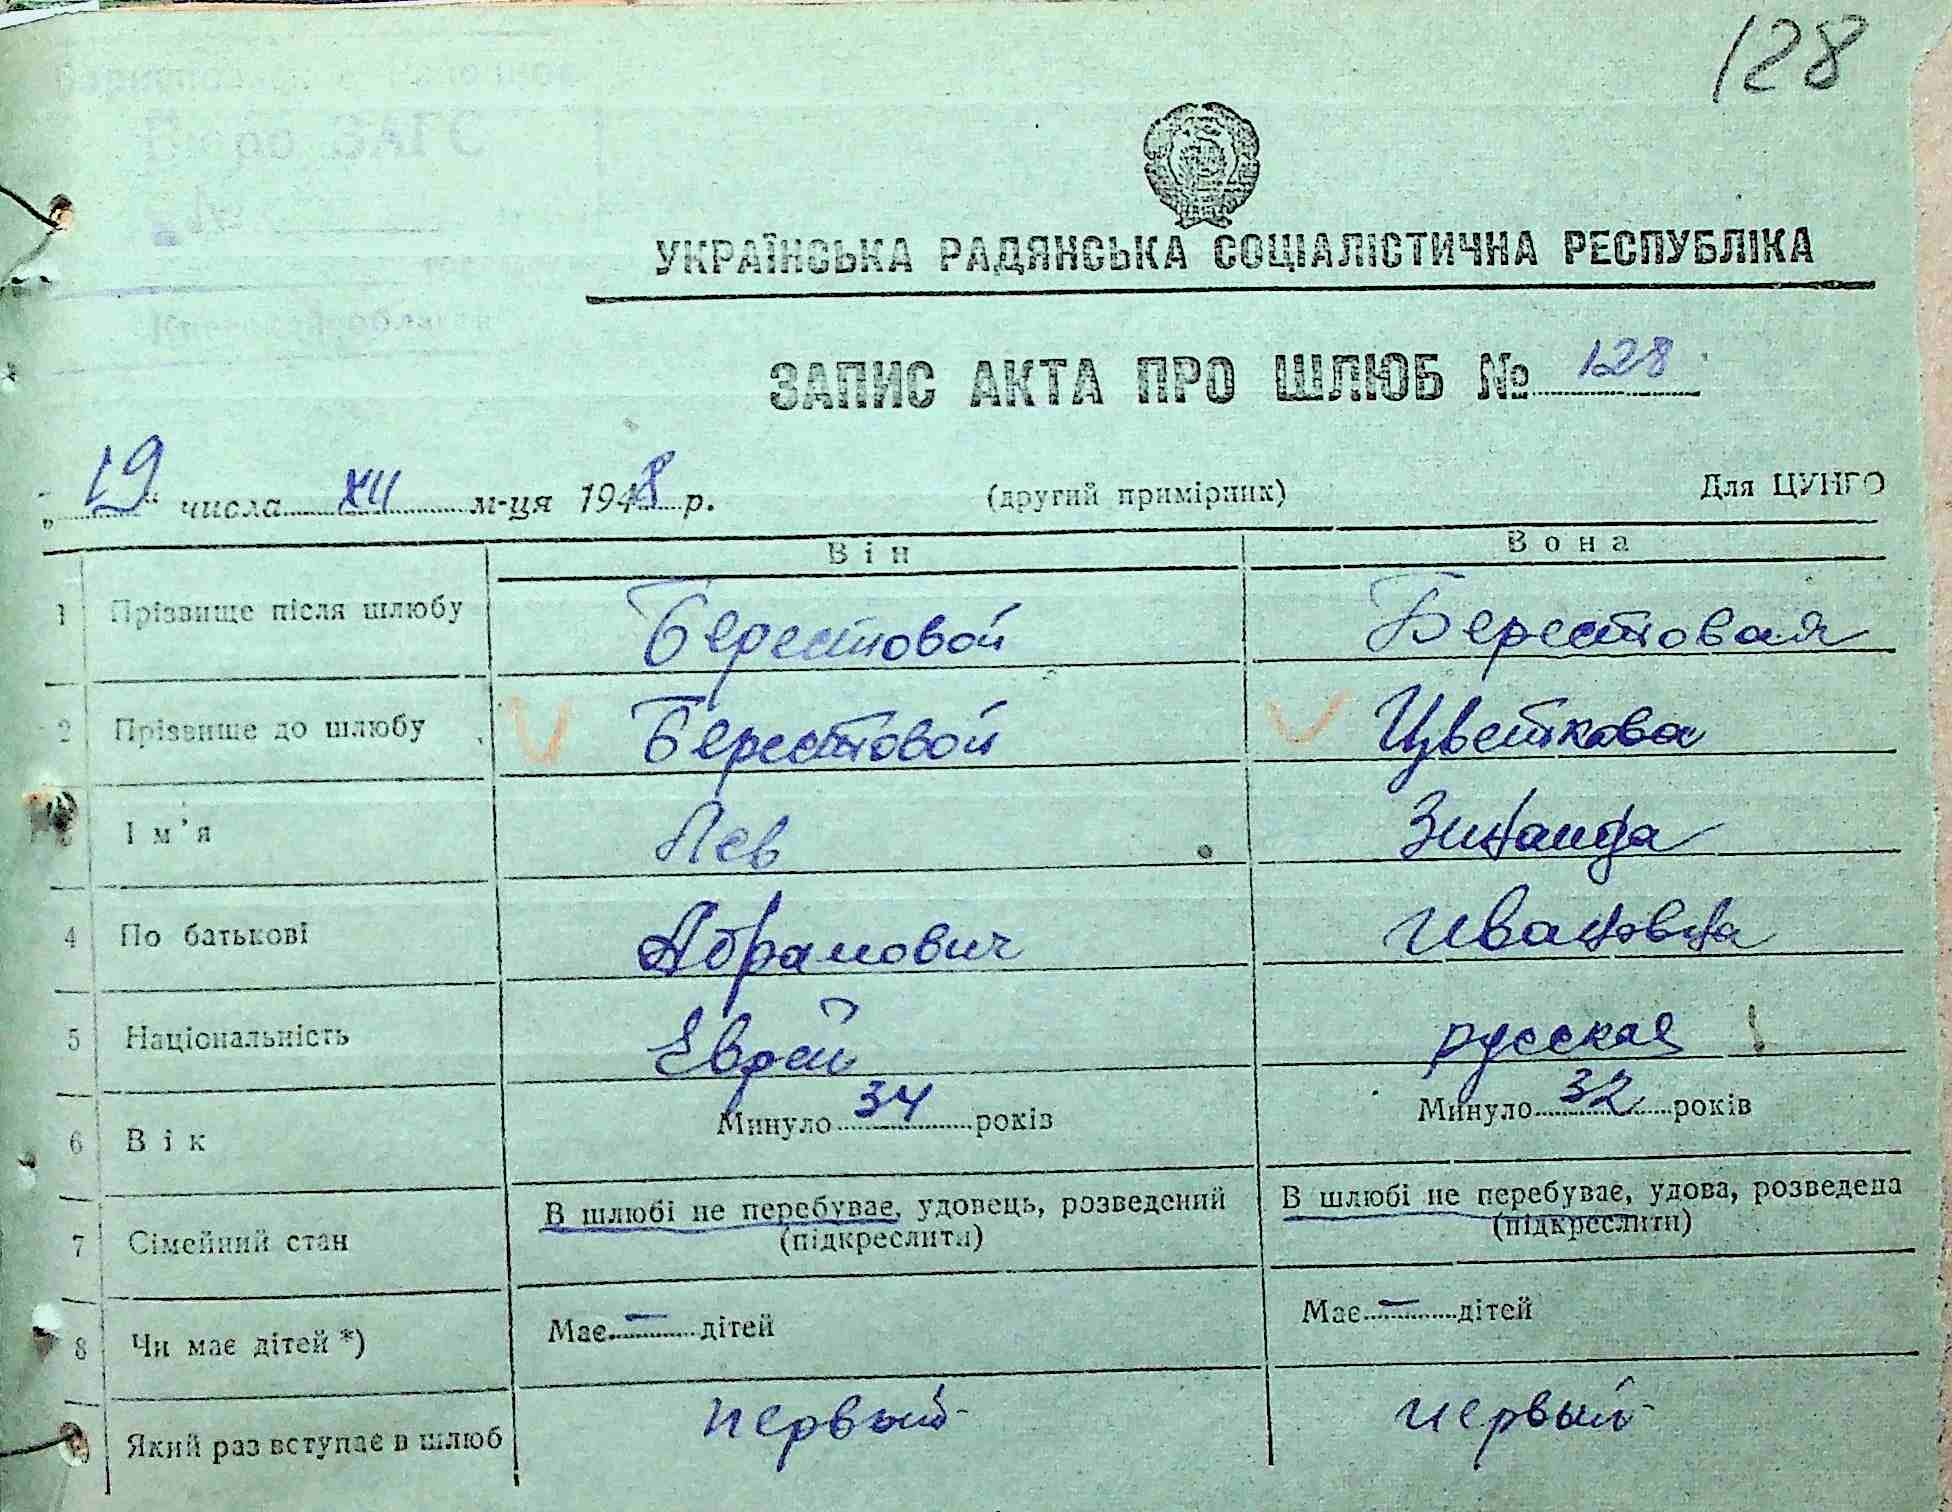 128
Бюро ЗАГС
УКРАЇНСЬКА РАДЯНСЬКА СОЦІАЛІСТИЧНА РЕСПУБЛІКА
ЗАПИС АКТА ПРО ШЛЮБ № 128
„19" числа XII м-ця 1948 р. (другий примірник) Для ЦУНГО
Він Вона
1 Прізвище після шлюбу Берестовой Берестовая
2 Прізвище до шлюбу Берестовой Цветкова
3 Ім'я Лев Зинаида
4 По батькові Абрамович Ивановна
5 Національність Еврей русская
6 Вік Минуло 34 років Минуло 32 років
7 Сімейний стан В шлюбі не перебуває, удовець, розведений (підкреслити) В шлюбі не перебуває, удова, розведена (підкреслити)
8 Чи має дітей *) Має — дітей Має — дітей
9 Який раз вступає в шлюб первый первый